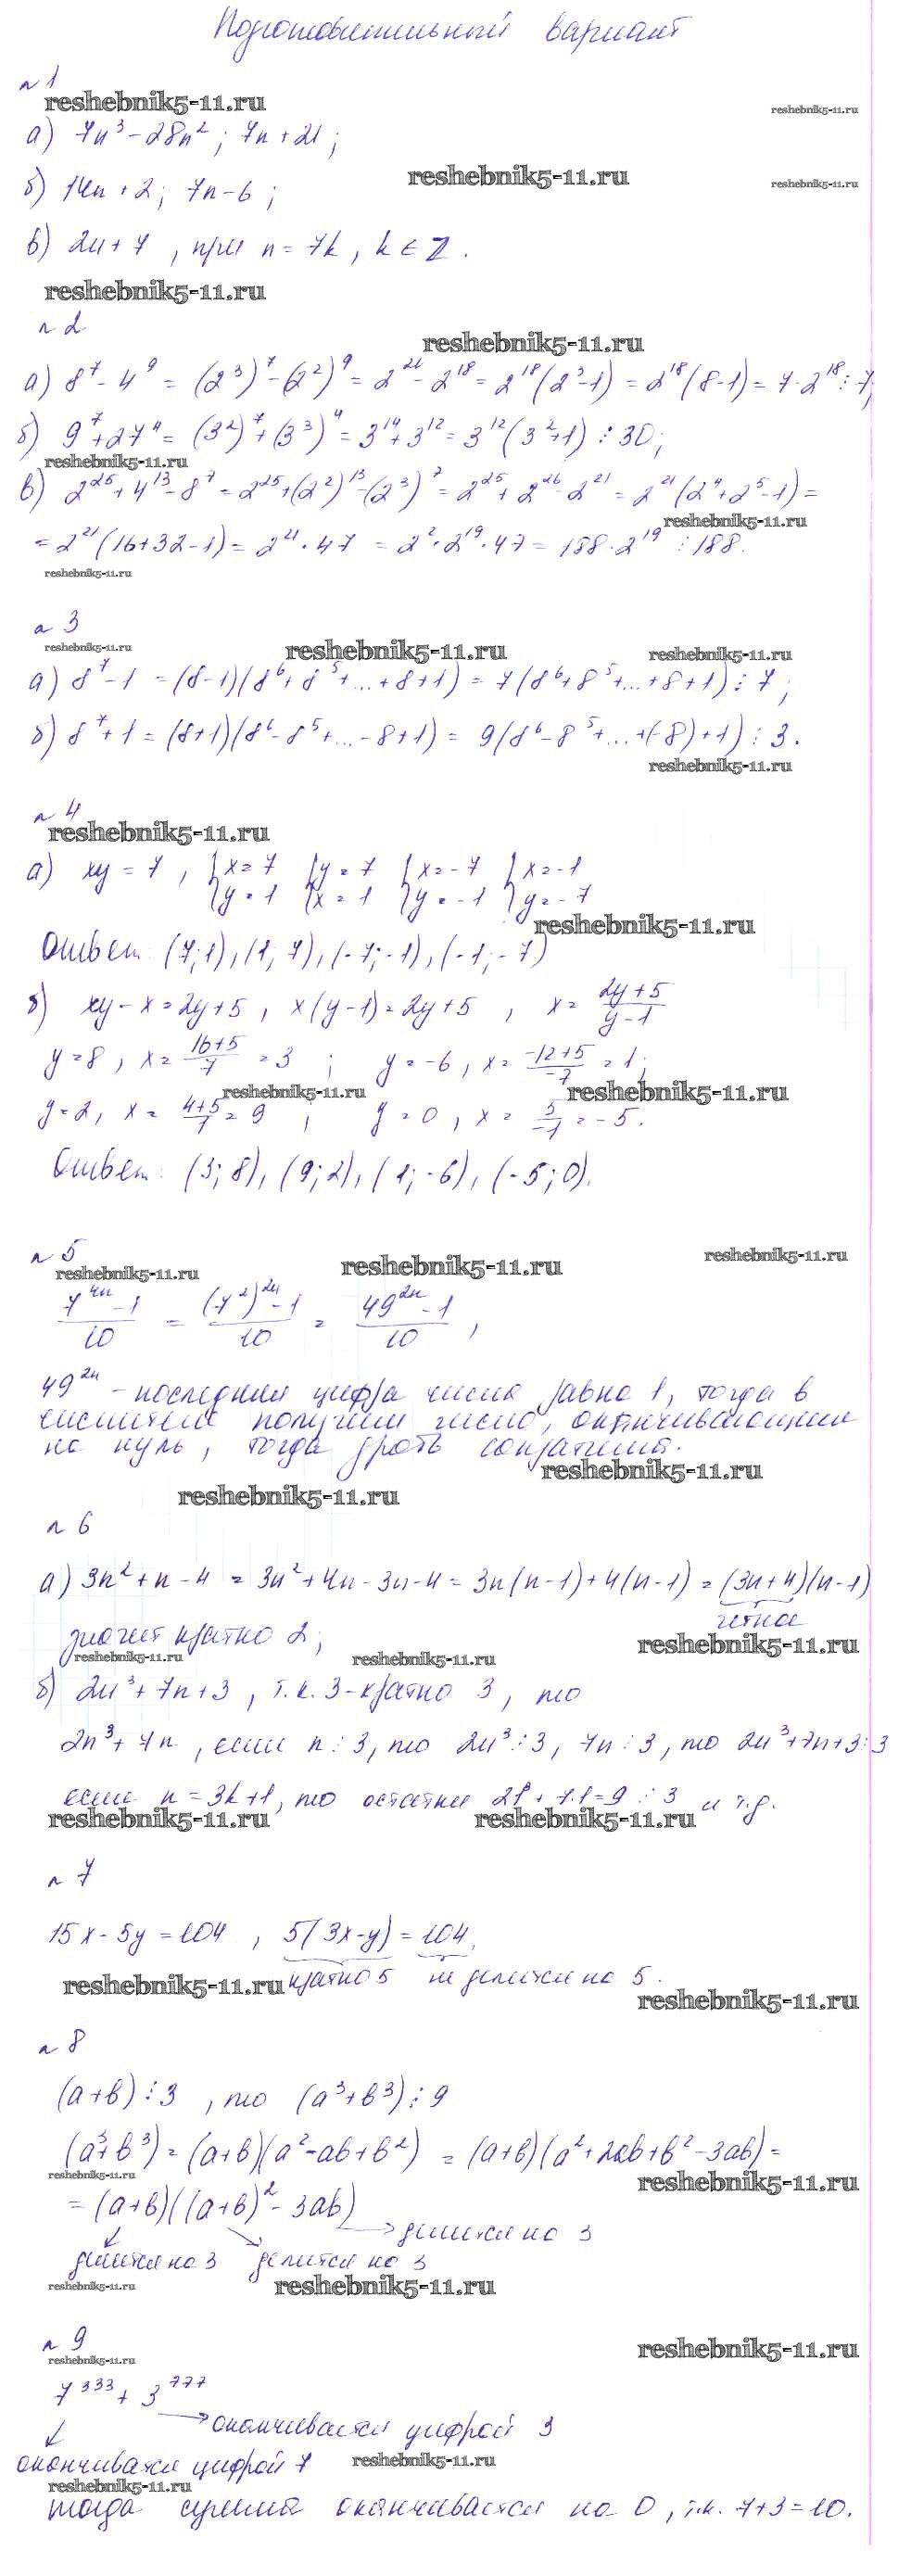 Подготовительный вариант
n 1
reshebnik5-11.ru
reshebnik5-11.ru
а) 7n³ - 28n²; 7n + 21;
reshebnik5-11.ru
reshebnik5-11.ru
б) 14n + 2; 7n - 6;
в) 2n + 7, при n = 7k, k ∈ Z.
reshebnik5-11.ru
n 2
reshebnik5-11.ru
а) 8⁷ - 4⁹ = (2³)⁷ - (2²)⁹ = 2²¹ - 2¹⁸ = 2¹⁸(2³-1) = 2¹⁸(8-1) = 7·2¹⁸ ⋮ 7;
б) 9⁷ + 27⁴ = (3²)⁷ + (3³)⁴ = 3¹⁴ + 3¹² = 3¹²(3²+1) ⋮ 30;
reshebnik5-11.ru
в) 2²⁵ + 4¹³ - 8⁷ = 2²⁵ + (2²)¹³ - (2³)⁷ = 2²⁵ + 2²⁶ - 2²¹ = 2²¹(2⁴+2⁵-1) =
reshebnik5-11.ru
= 2²¹(16+32-1) = 2²¹·47 = 2²·2¹⁹·47 = 188·2¹⁹ ⋮ 188.
reshebnik5-11.ru
n 3
reshebnik5-11.ru
reshebnik5-11.ru
reshebnik5-11.ru
а) 8⁷ - 1 = (8-1)(8⁶+8⁵+...+8+1) = 7(8⁶+8⁵+...+8+1) ⋮ 7;
б) 8⁷ + 1 = (8+1)(8⁶-8⁵+...-8+1) = 9(8⁶-8⁵+...+(-8)+1) ⋮ 3.
reshebnik5-11.ru
n 4
reshebnik5-11.ru
а) xy = 7, { x = 7 { y = 7 { x = -7 { x = -1
y = 1 x = 1 y = -1 y = -7
reshebnik5-11.ru
Ответ: (7;1), (1,7), (-7;-1), (-1;-7)
б) xy - x = 2y + 5, x(y-1) = 2y + 5, x = (2y+5)/(y-1)
y = 8, x = (16+5)/7 = 3; y = -6, x = (-12+5)/(-7) = 1;
reshebnik5-11.ru
reshebnik5-11.ru
y = 2, x = (4+5)/1 = 9; y = 0, x = 5/(-1) = -5.
Ответ: (3;8), (9;2), (1;-6), (-5;0).
n 5
reshebnik5-11.ru
reshebnik5-11.ru
reshebnik5-11.ru
(7⁴ⁿ-1)/10 = ((7²)²ⁿ-1)/10 = (49²ⁿ-1)/10,
49²ⁿ - последняя цифра числа равна 1, тогда в
числителе получим число, оканчивающиеся
на нуль, тогда дробь сократима.
reshebnik5-11.ru
reshebnik5-11.ru
n 6
а) 3n² + n - 4 = 3n² + 4n - 3n - 4 = 3n(n-1) + 4(n-1) = (3n+4)(n-1)
четная
значит кратно 2;
reshebnik5-11.ru
reshebnik5-11.ru
reshebnik5-11.ru
б) 2n³ + 7n + 3, т.к. 3 - кратно 3, то
2n³ + 7n, если n ⋮ 3, то 2n³ ⋮ 3, 7n ⋮ 3, то 2n³+7n+3 ⋮ 3
если n = 3k+1, то остатки 2·1³ + 7·1 = 9 ⋮ 3 и т.д.
reshebnik5-11.ru
reshebnik5-11.ru
n 7
15x - 5y = 104, 5(3x-y) = 104,
reshebnik5-11.ru
кратно 5 не делится на 5.
reshebnik5-11.ru
n 8
(a+b) ⋮ 3, то (a³+b³) ⋮ 9
(a³+b³) = (a+b)(a²-ab+b²) = (a+b)(a²+2ab+b²-3ab) =
reshebnik5-11.ru
reshebnik5-11.ru
= (a+b)((a+b)² - 3ab)
делится на 3
делится на 3 делится на 3
reshebnik5-11.ru
reshebnik5-11.ru
n 9
reshebnik5-11.ru
reshebnik5-11.ru
7³³³ + 3⁷⁷⁷
оканчивается цифрой 3
оканчивается цифрой 7
reshebnik5-11.ru
reshebnik5-11.ru
тогда сумма оканчивается на 0, т.к. 7+3=10.